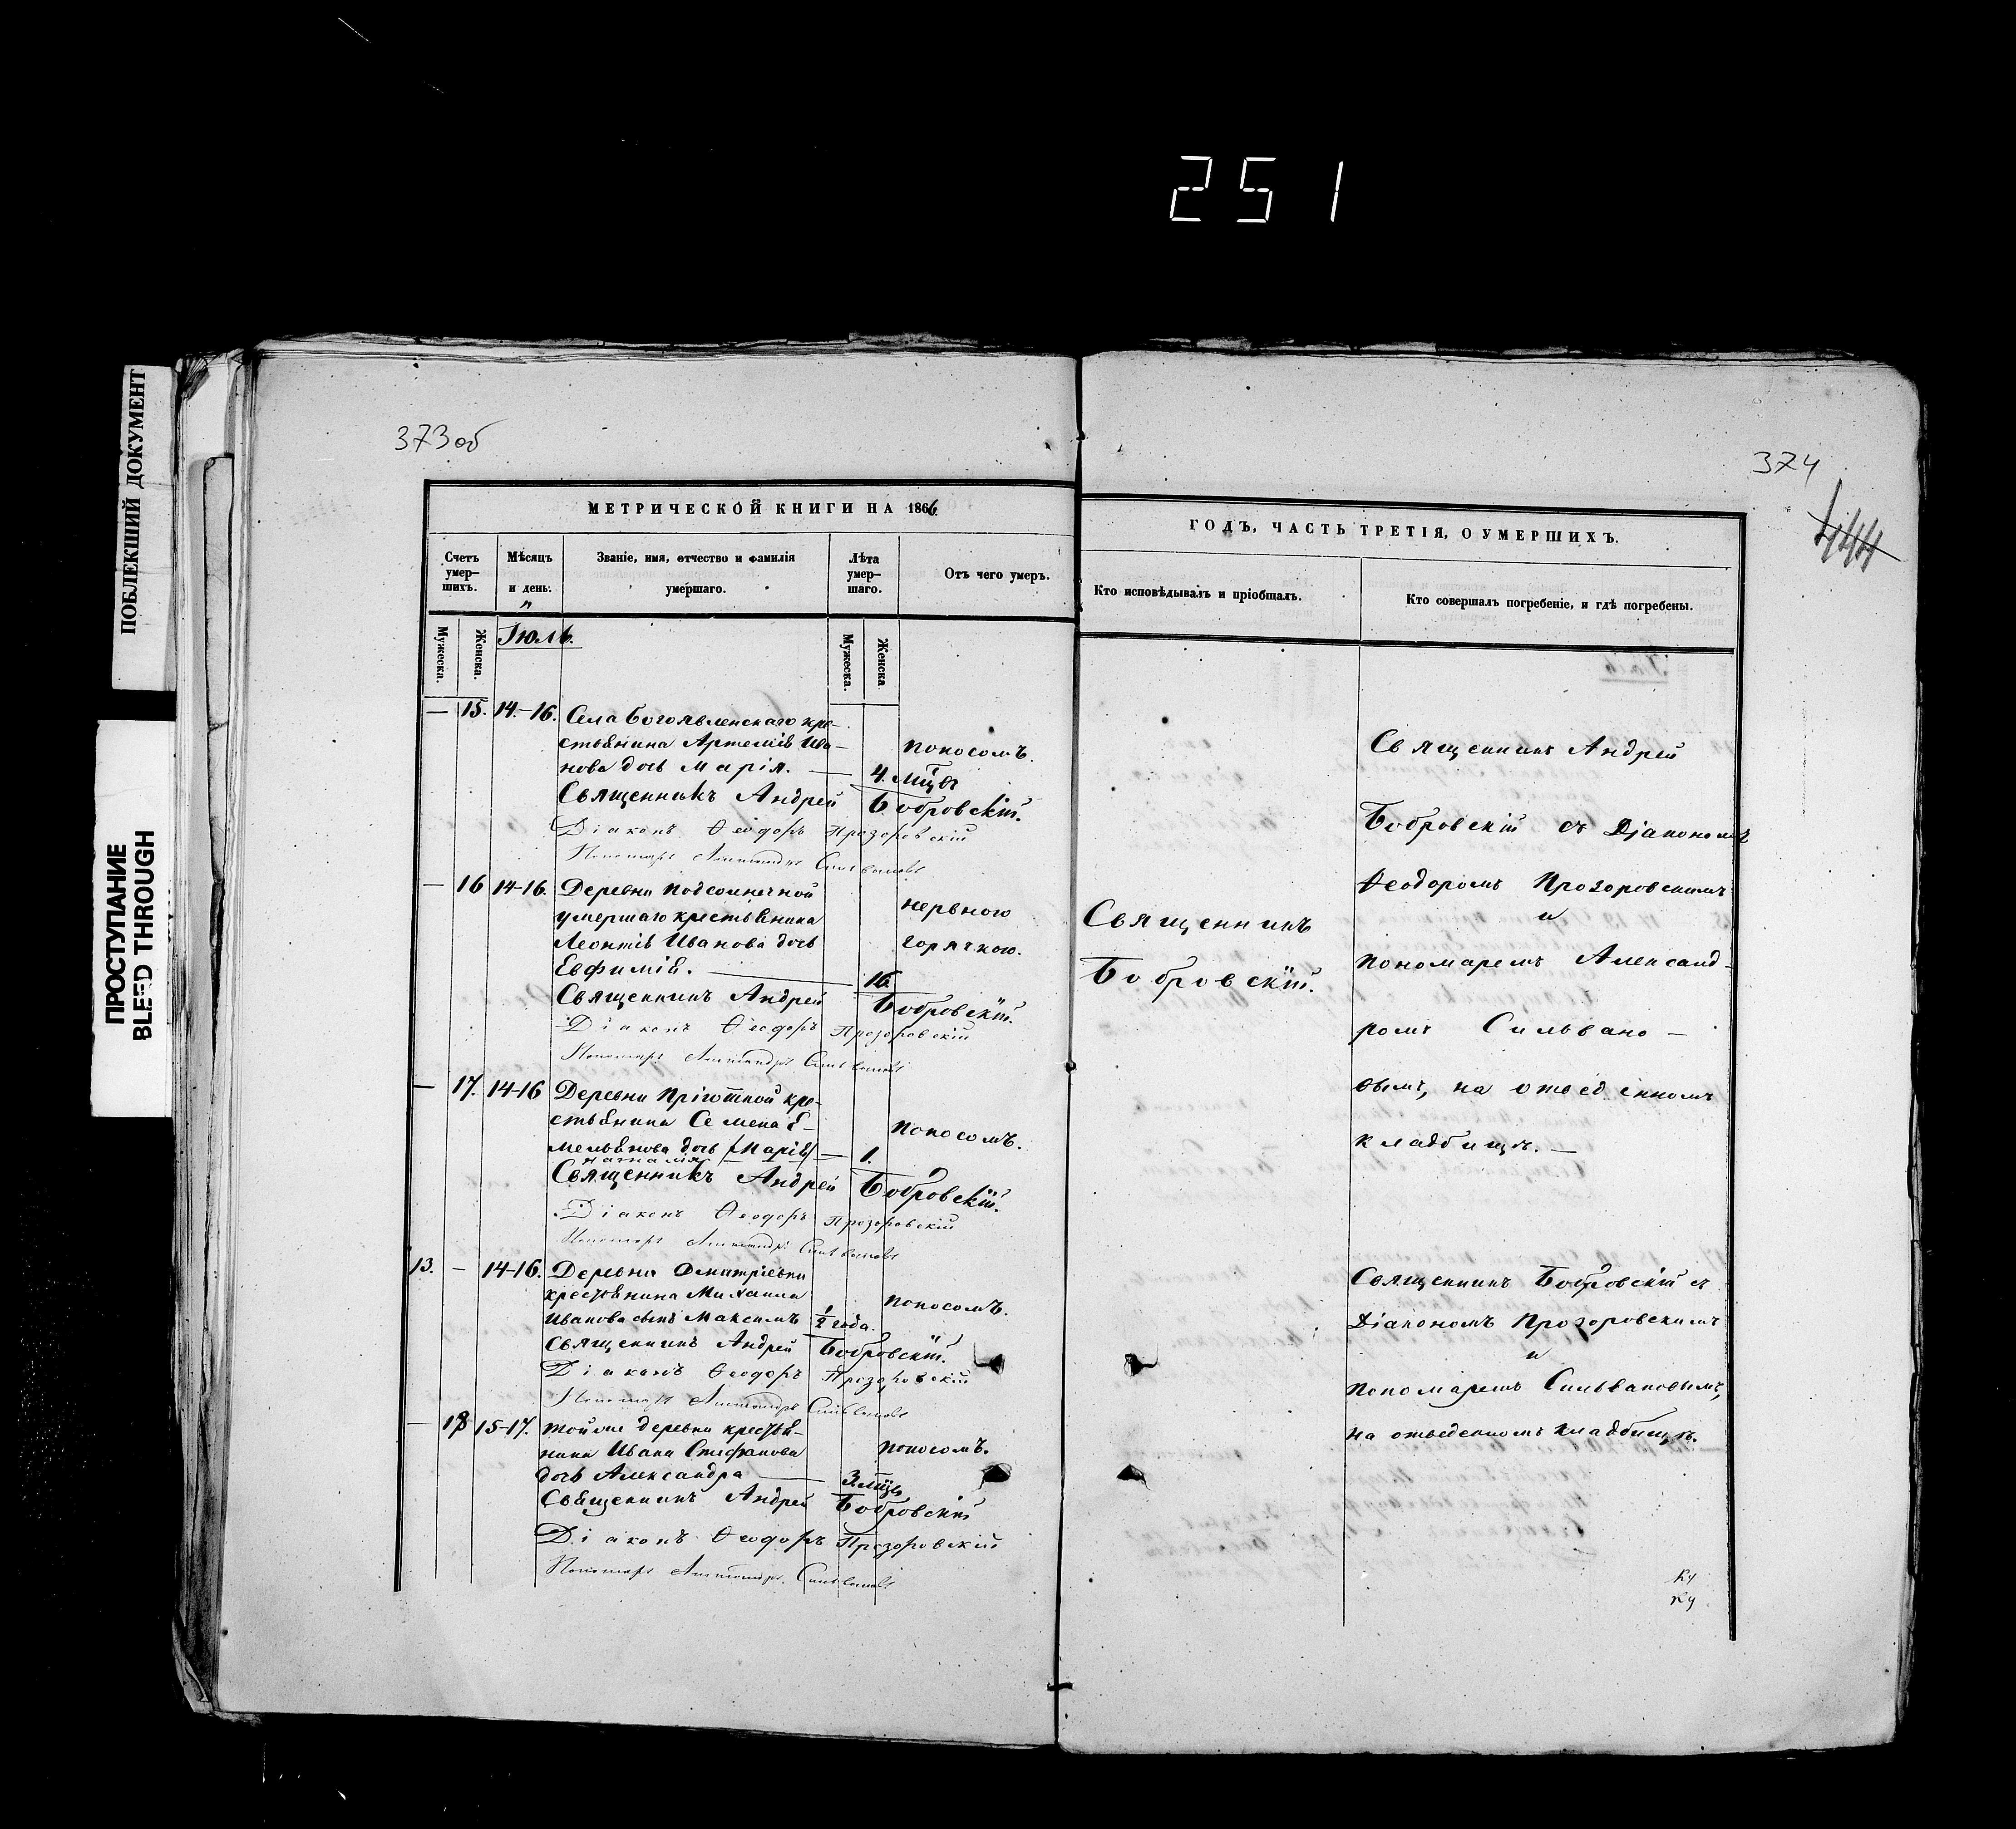 251
ПОБЛЕКШИЙ ДОКУМЕНТ
ПРОСТУПАНИЕ
BLEED THROUGH
373об
МЕТРИЧЕСКОЙ КНИГИ НА 1866
Счетъ умер-шихъ.
Мѣсяцъ и день.
Званіе, имя, отчество и фамилія умершаго.
Лѣта умер-шаго.
Отъ чего умеръ.
Мужеска.
Женска.
Іюль.
Мужеска.
Женска
— 15. 14.-16. Села Богоявленскаго кре-
стьянина Артемія Ива- поносомъ.
нова дочь Марія. — 4. мцъ
Священникъ Андрей Бобровскій.
Діаконъ Ѳеодоръ Прозоровскій
Пономарь Александръ Сильвановъ
— 16 14-16. Деревни Подсолнечной
умершаго крестьянина нервною
Леонтія Иванова дочь горячкою.
Евфимія. — 16.
Священникъ Андрей Бобровскій.
Діаконъ Ѳеодоръ Прозоровскій
Пономарь Александръ Сильвановъ
— 17. 14-16 Деревни Пріютной кре-
стьянина Семена Е- поносомъ.
мельянова дочь (Марія) — 1.
наталія
Священникъ Андрей Бобровскій.
Діаконъ Ѳеодоръ Прозоровскій
Пономарь Александръ Сильвановъ
13. — 14-16. Деревни Дмитріевки
крестьянина Михаила поносомъ.
Иванова сынъ Максимъ 1/2 года.
Священникъ Андрей Бобровскій.
Діаконъ Ѳеодоръ Прозоровскій
Пономарь Александръ Сильвановъ
— 18 15-17. Той же деревни крестья-
нина Ивана Стефанова поносомъ.
дочь Александра — 3. мцъ
Священникъ Андрей Бобровскій
Діаконъ Ѳеодоръ Прозоровскій
Пономарь Александръ Сильвановъ
374
444
ГОДЪ, ЧАСТЬ ТРЕТІЯ, О УМЕРШИХЪ.
Кто исповѣдывалъ и пріобщалъ.
Кто совершалъ погребеніе, и гдѣ погребены.
Священникъ
Бобровскій.
Священникъ Андрей
Бобровскій съ Діакономъ
Ѳеодоромъ Прозоровскимъ
и
пономаремъ Александ-
ромъ Сильвано-
вымъ, на отведенномъ
кладбищѣ. —
Священникъ Бобровскій съ
Діакономъ Прозоровскимъ
и
пономаремъ Сильвановымъ,
на отведенномъ кладбищѣ.
Ку
Ку